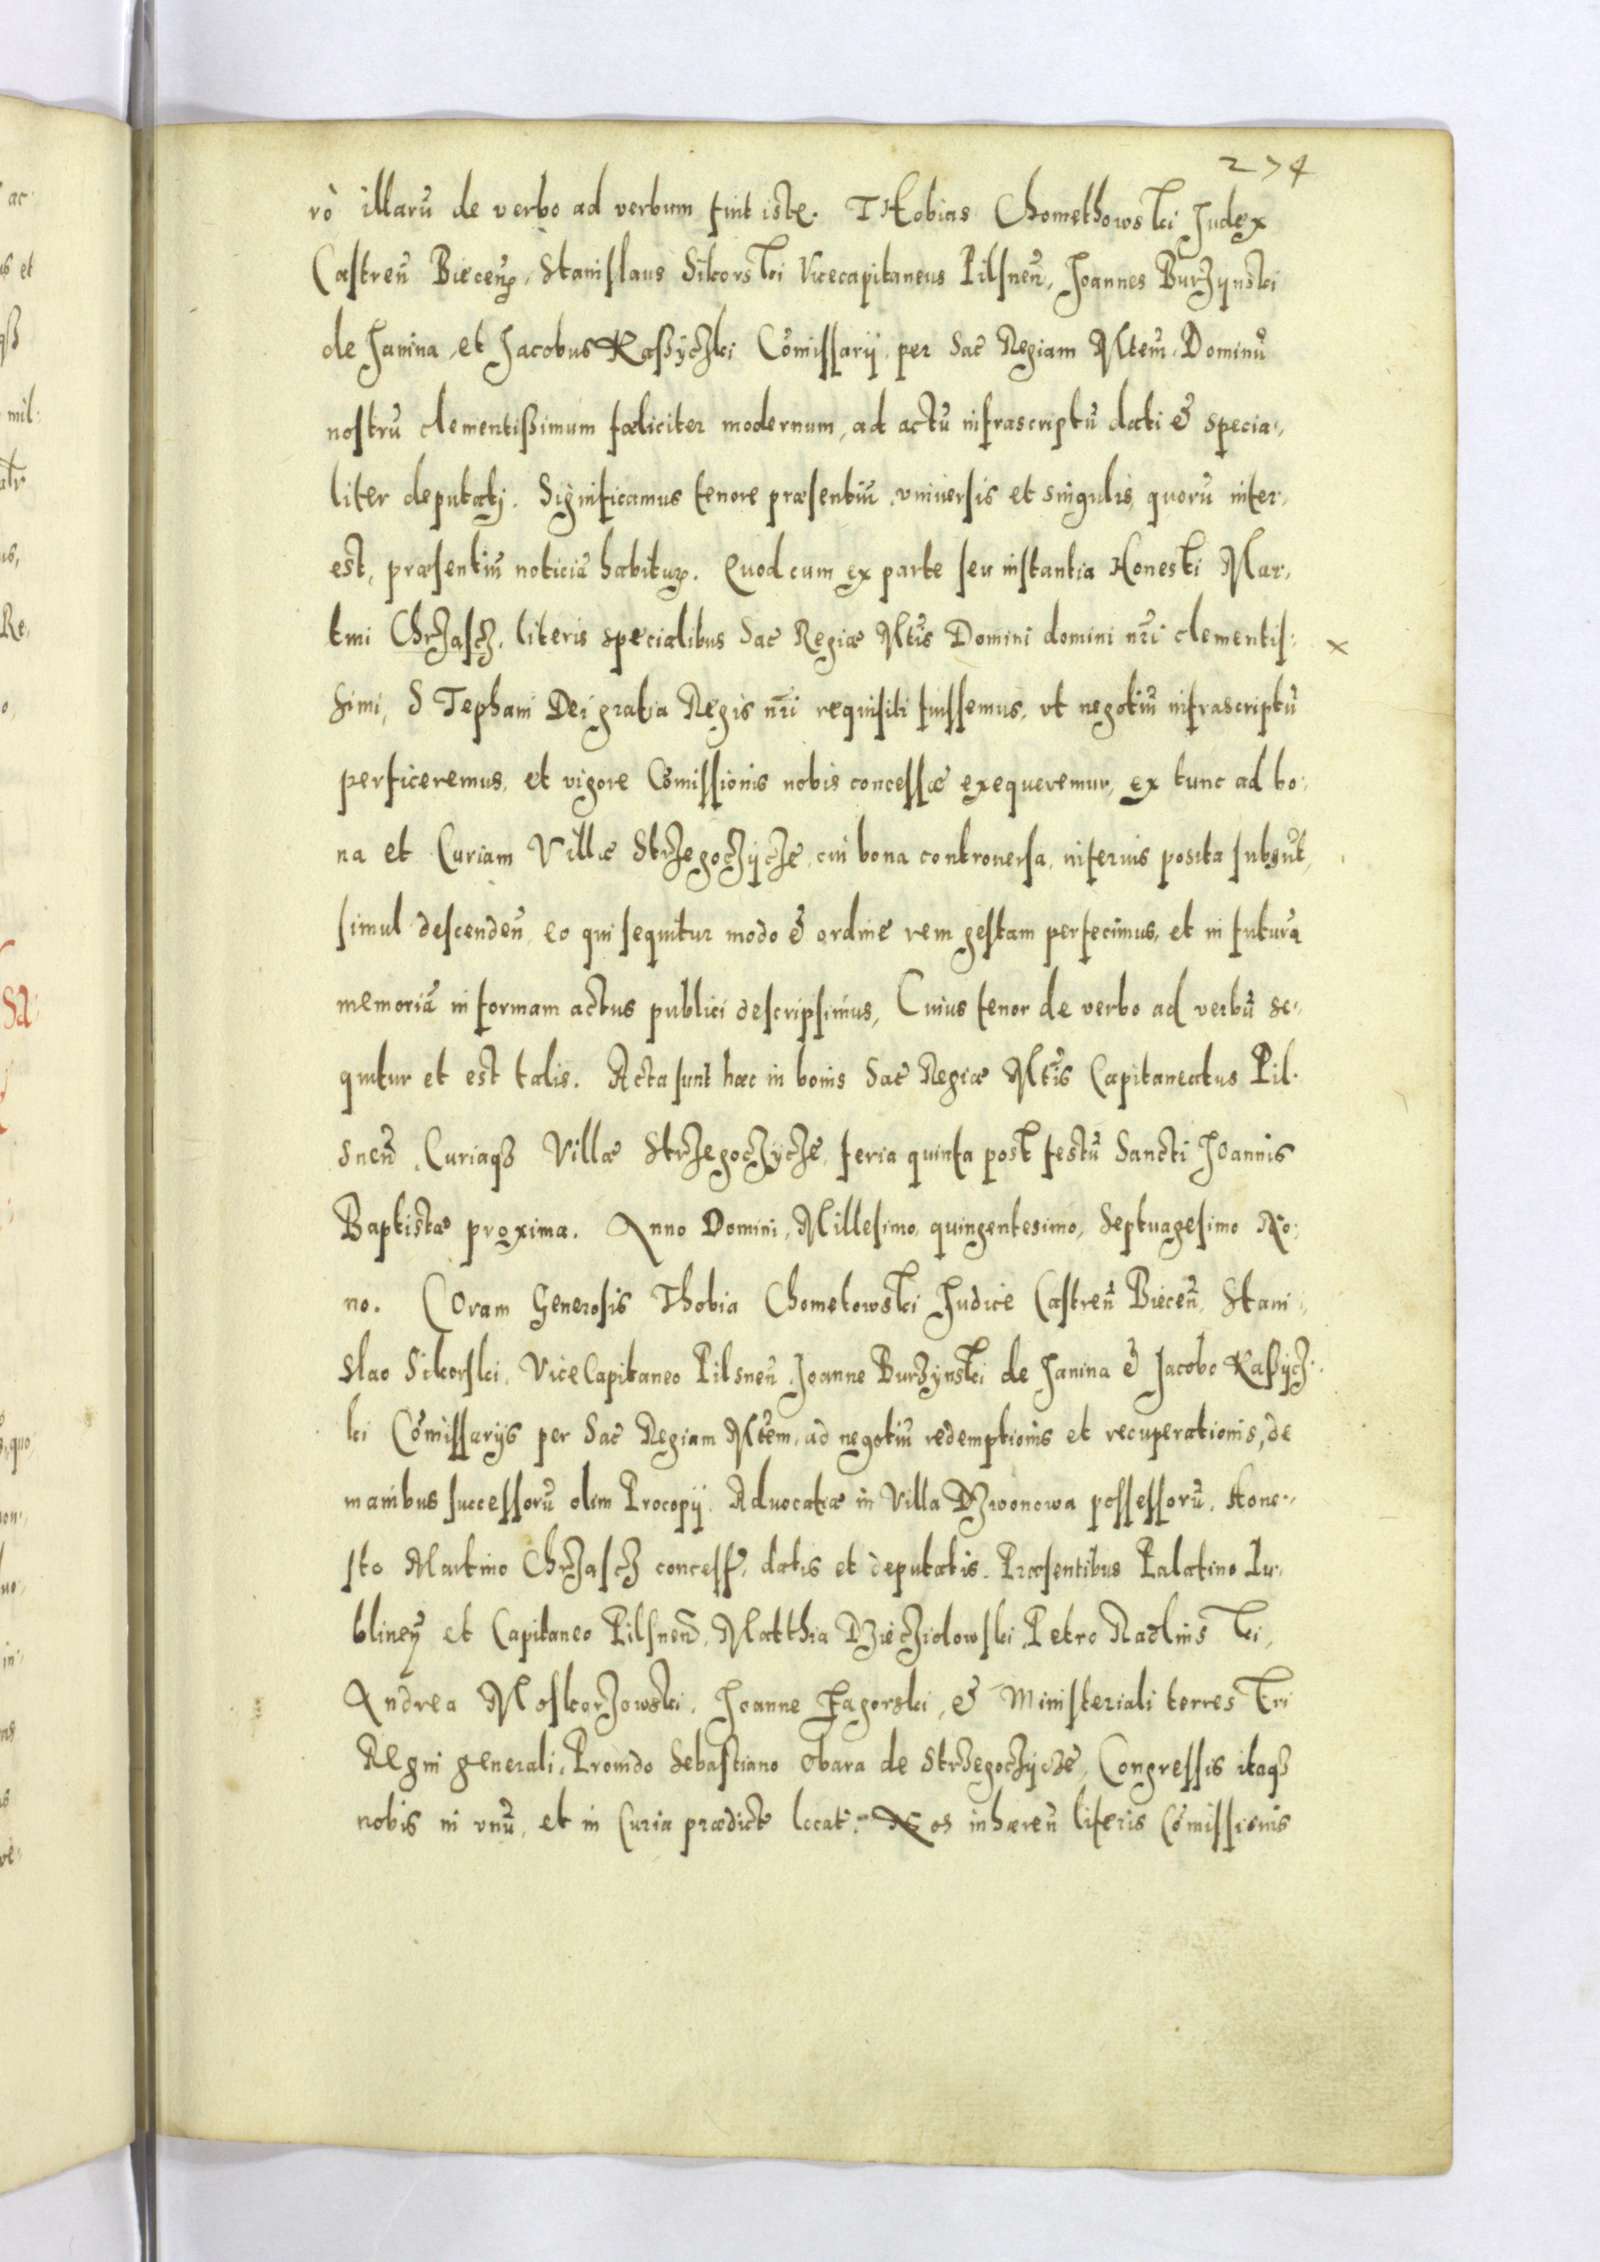 274
rò illarũ de verbo ad verbum sũt iste. THobias Chomethowski Judex
Castreñ Bieceñ, Stanislaus Sikorski Vicecapitaneus Pilsneñ, Joannes Burzynski
de Janina, et Jacobus Raszyczki Cõmissarij per Sac Regiam Mtem̃ Dominũ
nostrũ clementißimum fæliciter modernum, ad actũ infrascriptũ dati & specia„
liter deputatj. Significamus tenore præsentiũ, vniuersis et singulis quorũ inter„
est, præsentiũ noticiã habitur. Quod cum ex parte seu instantia Honesti Mar„
tini Chrząscz, literis specialibus Sac Regiæ Mtis̃ Domini domini nr̃i clementis:
simi, STephani Dei gratia Regis nr̃i requisiti fuissemus, vt negotiũ infrascriptũ
perficeremus, et vigore Cõmissionis nobis concessæ exequeremur, ex tunc ad bo„
na et Curiam Villæ Strzegoczycze, cui bona controuersa, inferius posita subsũt,
simul descendeñ, eo qui sequitur modo & ordine rem gestam perfecimus, et in futurã
memoriã in formam actus publici descripsimus, Cuius tenor de verbo ad verbũ se„
quitur et est talis. Acta sunt hæc in bonis Sac Regiæ Mtis̃ Capitaneatus Pil„
sneñ, Curiaqȝ Villæ Strzegoczycze, feria quinta post festũ Sancti Joannis
Baptistæ proxima. Anno Domini, Millesimo, quingentesimo, Septuagesimo No„
no. Coram Generosis Thobia Chometowski Judice Castreñ Bieceñ, Stani„
slao Sikorski, ViceCapitaneo Pilsneñ, Joanne Burzynski de Janina & Jacobo Raszycz„
ki Cõmissarijs per Sac Regiam Mtem̃, ad negotiũ redemptionis et recuperationis, de
manibus successorũ olim Procopij, Aduocatiæ in Villa Dzwonowa possessorũ, Hone„
sto Martino Chrząscz concess, datis et deputatis. Præsentibus Palatino Lu„
blineñ et Capitaneo Pilsneñ, Matthia Petro Radlinski,
Andrea Moskorzowski, Joanne Zagorski, & Ministeriali terrestri
Regni generali, Prouido Sebastiano Obara de Strzegoczycze, Congressis itaqȝ
nobis in vnũ, et in Curia prædict locat: Nos inhæreñ literis Cõmissionis
x